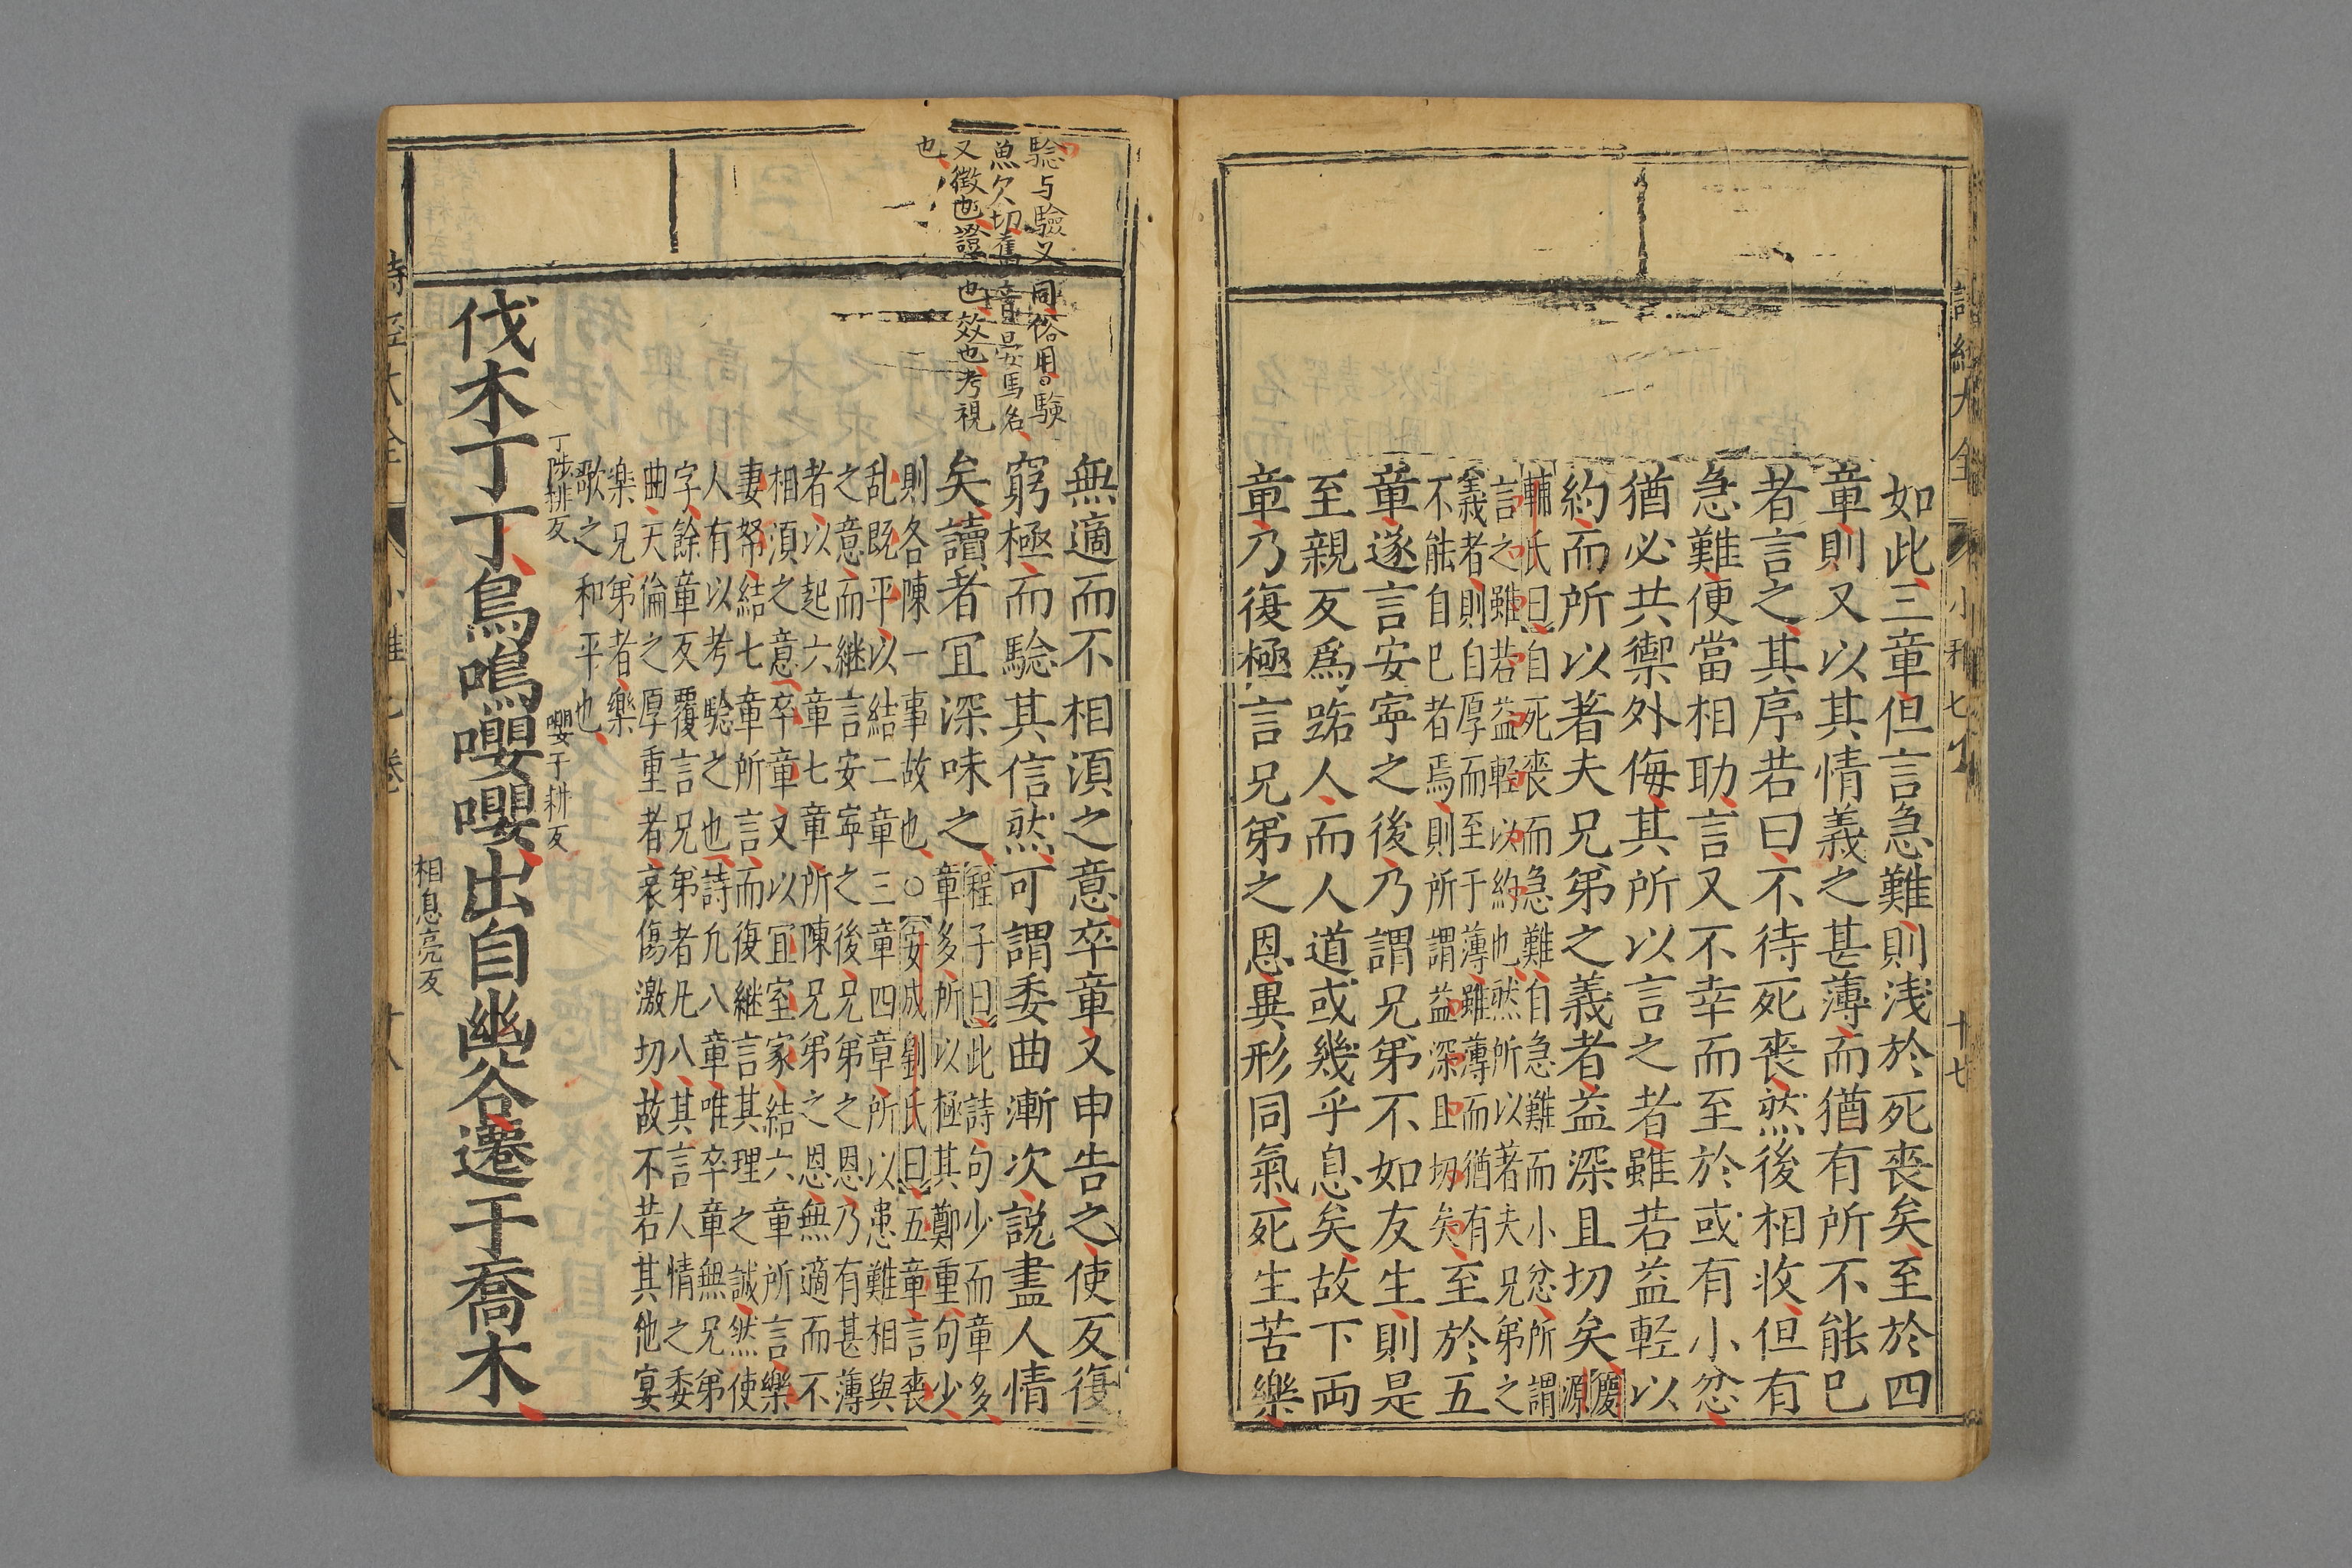 詩經大全
小雅七
十七
如此三章但言急難則浅於死喪矣至於四
章則又以其情義之甚薄而猶有所不能已
者言之其序若曰不待死喪然後相收但有
急難便當相助言又不幸而至於或有小忿
猶必共禦外侮其所以言之者雖若益輕以
約而所以著夫兄弟之義者益深且切矣慶
源
輔氏曰自死喪而急難自急難而小忿所謂
言之雖若益輕以約也然所以著夫兄弟之
義者則自厚而至于薄雖薄而猶有
不能自已者焉則所謂益深且切矣至於五
章遂言安寧之後乃謂兄弟不如友生則是
至親反爲路人而人道或幾乎息矣故下両
章乃復極言兄弟之恩異形同氣死生苦樂
騐与驗又同俗用。験
魚欠切舊音晏馬名
又徴也證也效也考視
也
無適而不相須之意卒章又申告之使反復
窮極而騐其信然可謂委曲漸次說盡人情
矣讀者宜深味之程子曰此詩句少而章多
章多所以極其鄭重句少
則各陳一事故也○安成劉氏曰五章言喪
乱既平以結二章三章四章所以患難相與
之意而継言安寧之後兄弟之恩乃有甚薄
者以起六章七章所陳兄弟之恩無適而不
相須之意卒章又以宜室家結六章所言樂
妻帑結七章所言而復継言其理之誠然使
人有以考騐之也詩凢八章唯卒章無兄弟
字餘章反覆言兄弟者凡八其言人情之委
曲天倫之厚重者哀傷激切故不若其他宴
楽兄弟者樂
歌之和平也
丁陟耕反
嚶于耕反
伐木丁丁鳥鳴嚶嚶出自幽谷遷于喬木
相息亮反
詩經大全
小雅七卷
十八